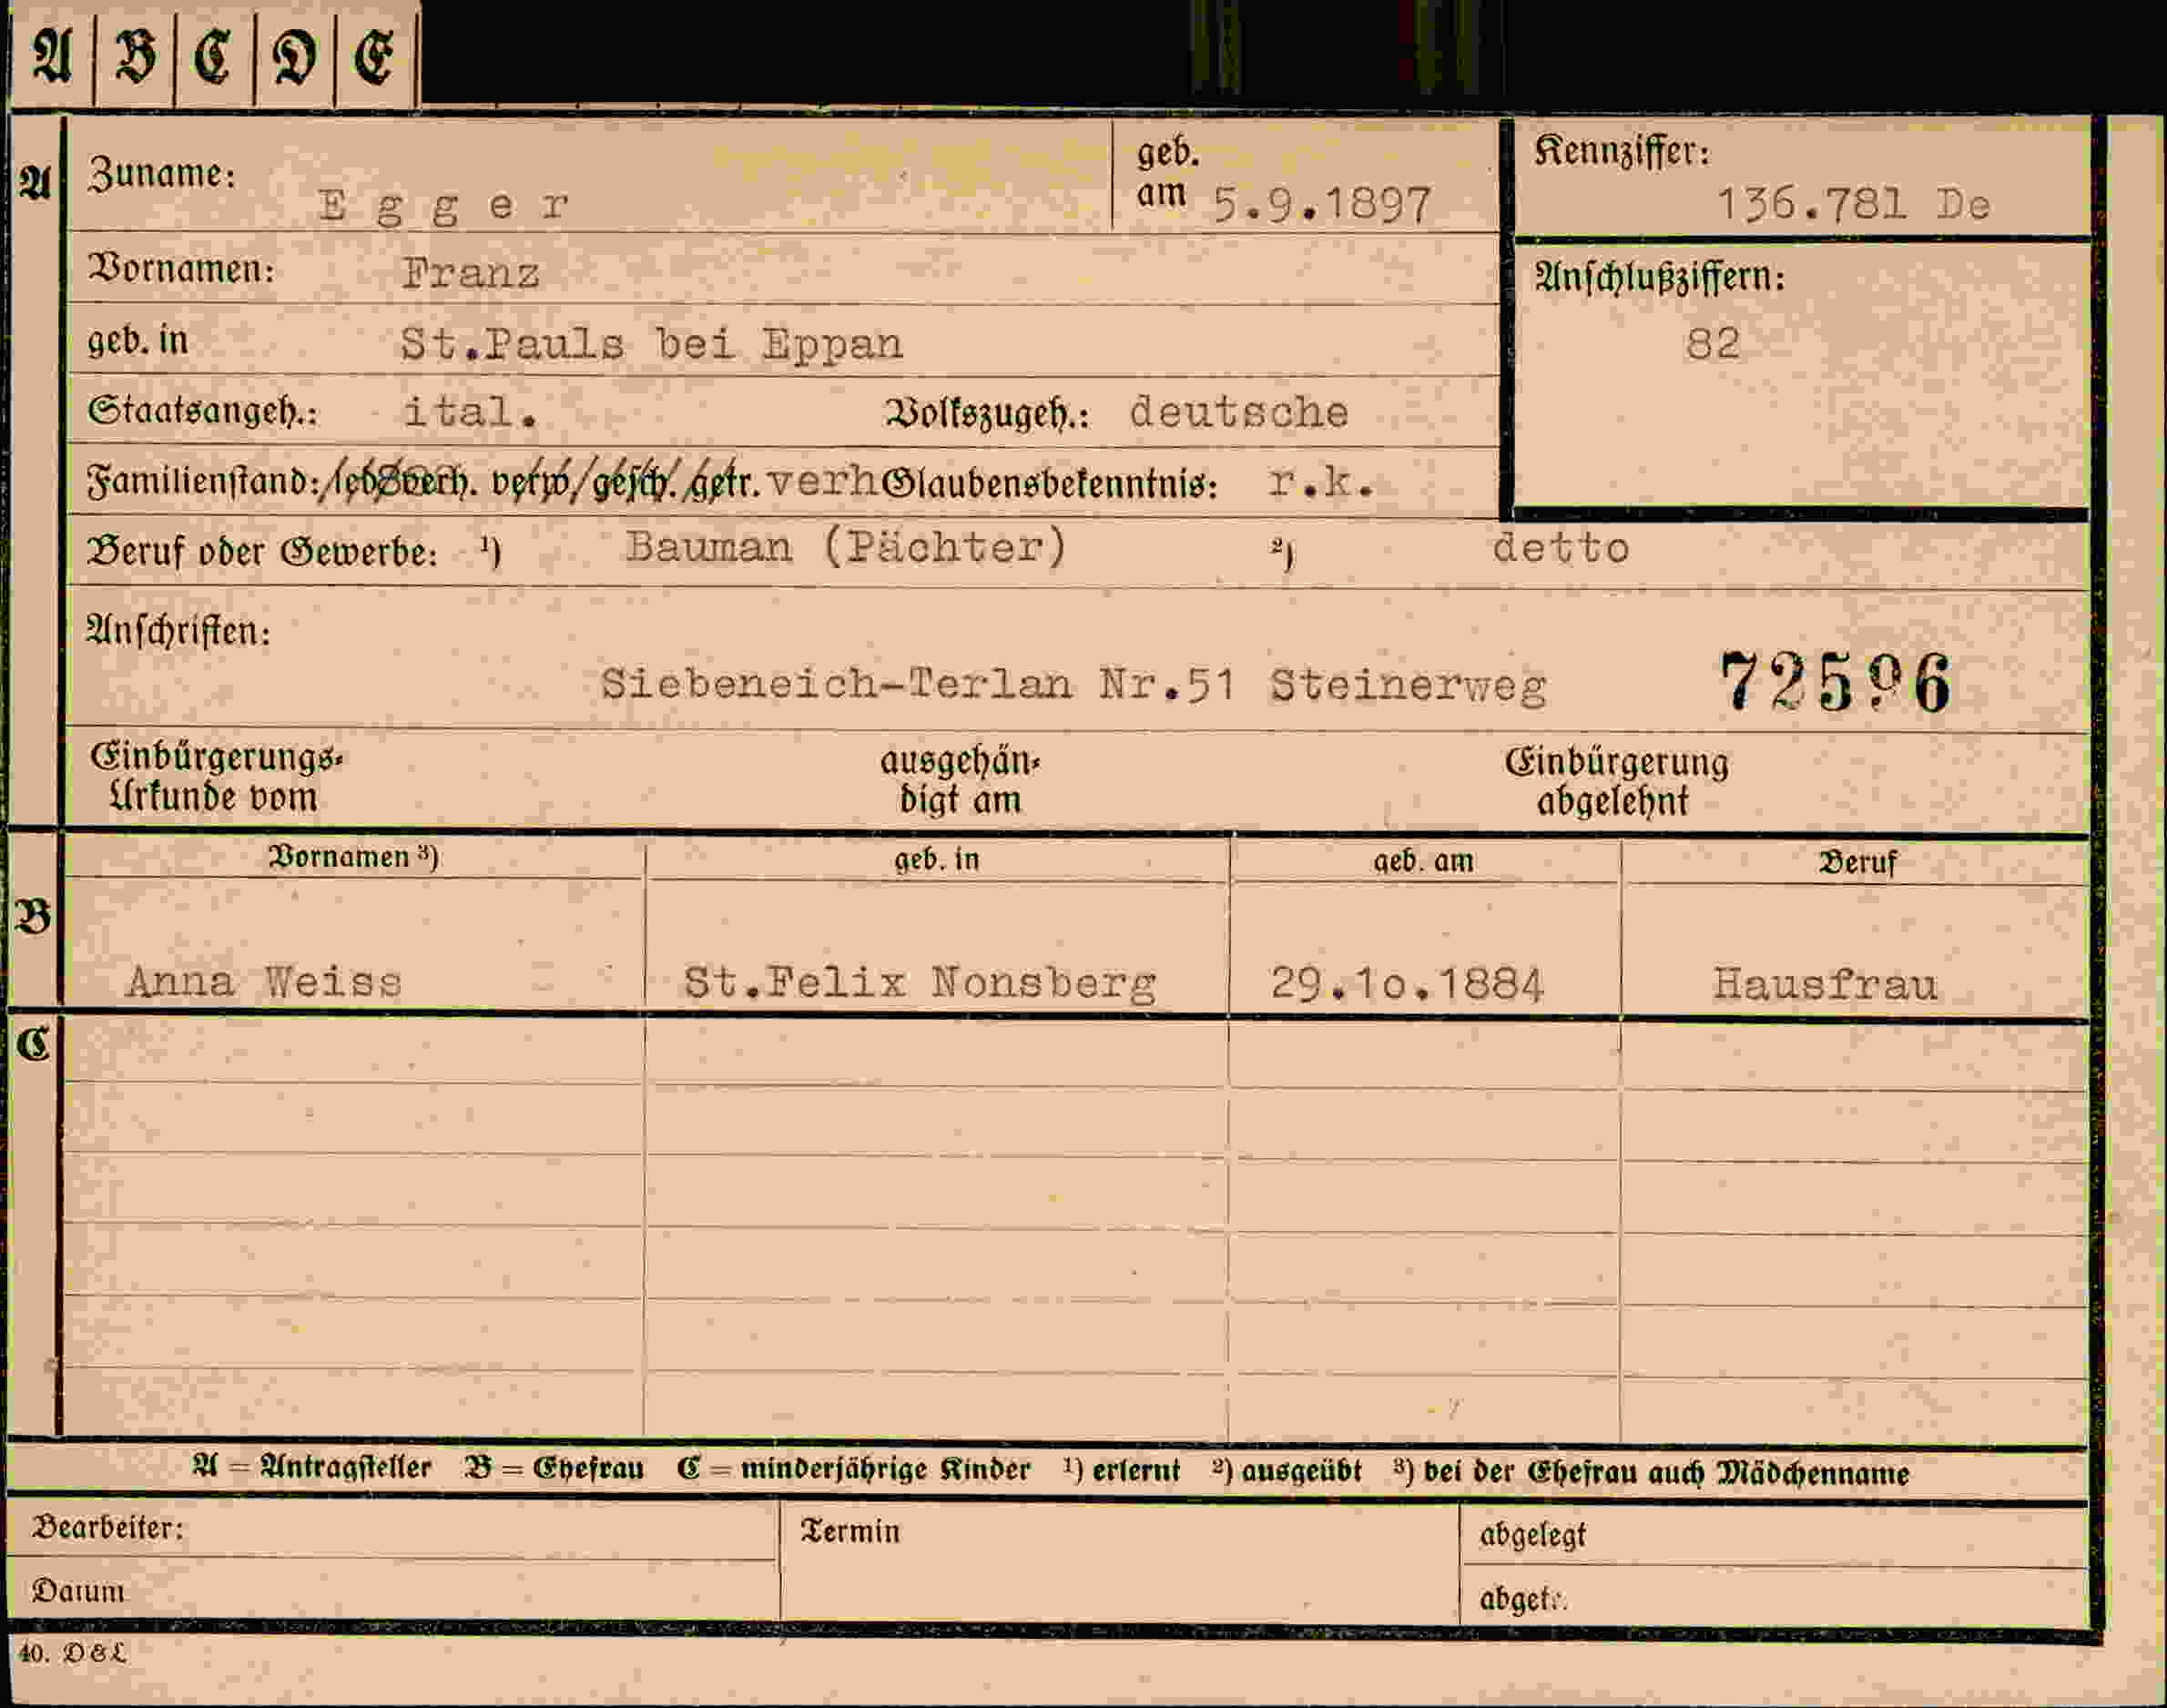 A B C D E
A Zuname: Egger geb. am 5.9.1897 Kennziffer: 136.781 De
Vornamen: Franz Anschlußziffern:
geb. in St.Pauls bei Eppan 82
Staatsangeh.: ital. Volkszugeh.: deutsche
Familienstand: led. verh. verw. gesch. getr. verh Glaubensbekenntnis: r.k.
Beruf oder Gewerbe: ¹) Bauman (Pächter) ²) detto
Anschriften:
Siebeneich-Terlan Nr.51 Steinerweg 72596
Einbürgerungs- ausgehän- Einbürgerung
Urkunde vom digt am abgelehnt
Vornamen ³) geb. in geb. am Beruf
B
Anna Weiss St.Felix Nonsberg 29.1o.1884 Hausfrau
C
A = Antragsteller B = Ehefrau C = minderjährige Kinder ¹) erlernt ²) ausgeübt ³) bei der Ehefrau auch Mädchenname
Bearbeiter: Termin abgelegt
Datum
40. D&L